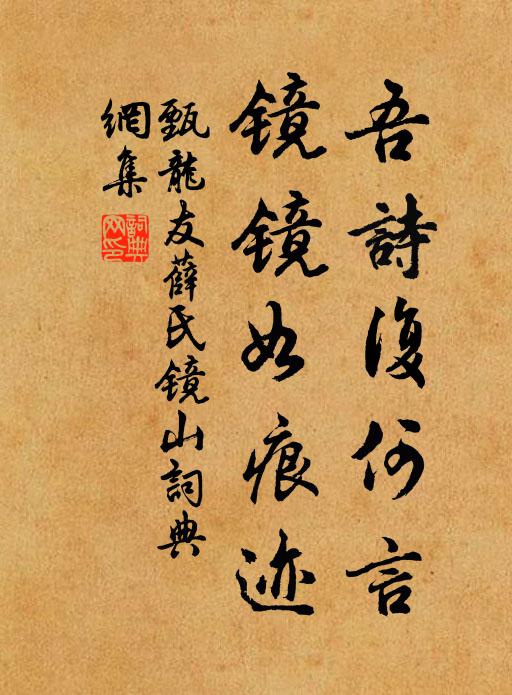 吾詩復何言
镜镜如痕迹
甄龍友薛氏镜山詞典
網集
詞典
网印